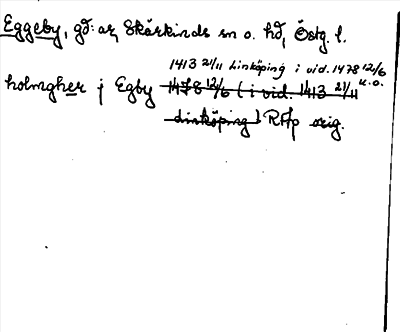 Eggeby, gd: ar, Skärkinds sn o. hd, Östg. l.
1413 21/11 Linköping i vid. 1478 12/6 u.o.
holmgher j Egby 1478 12/6 (i vid. 1413 21/11
Linköping) RAp orig.